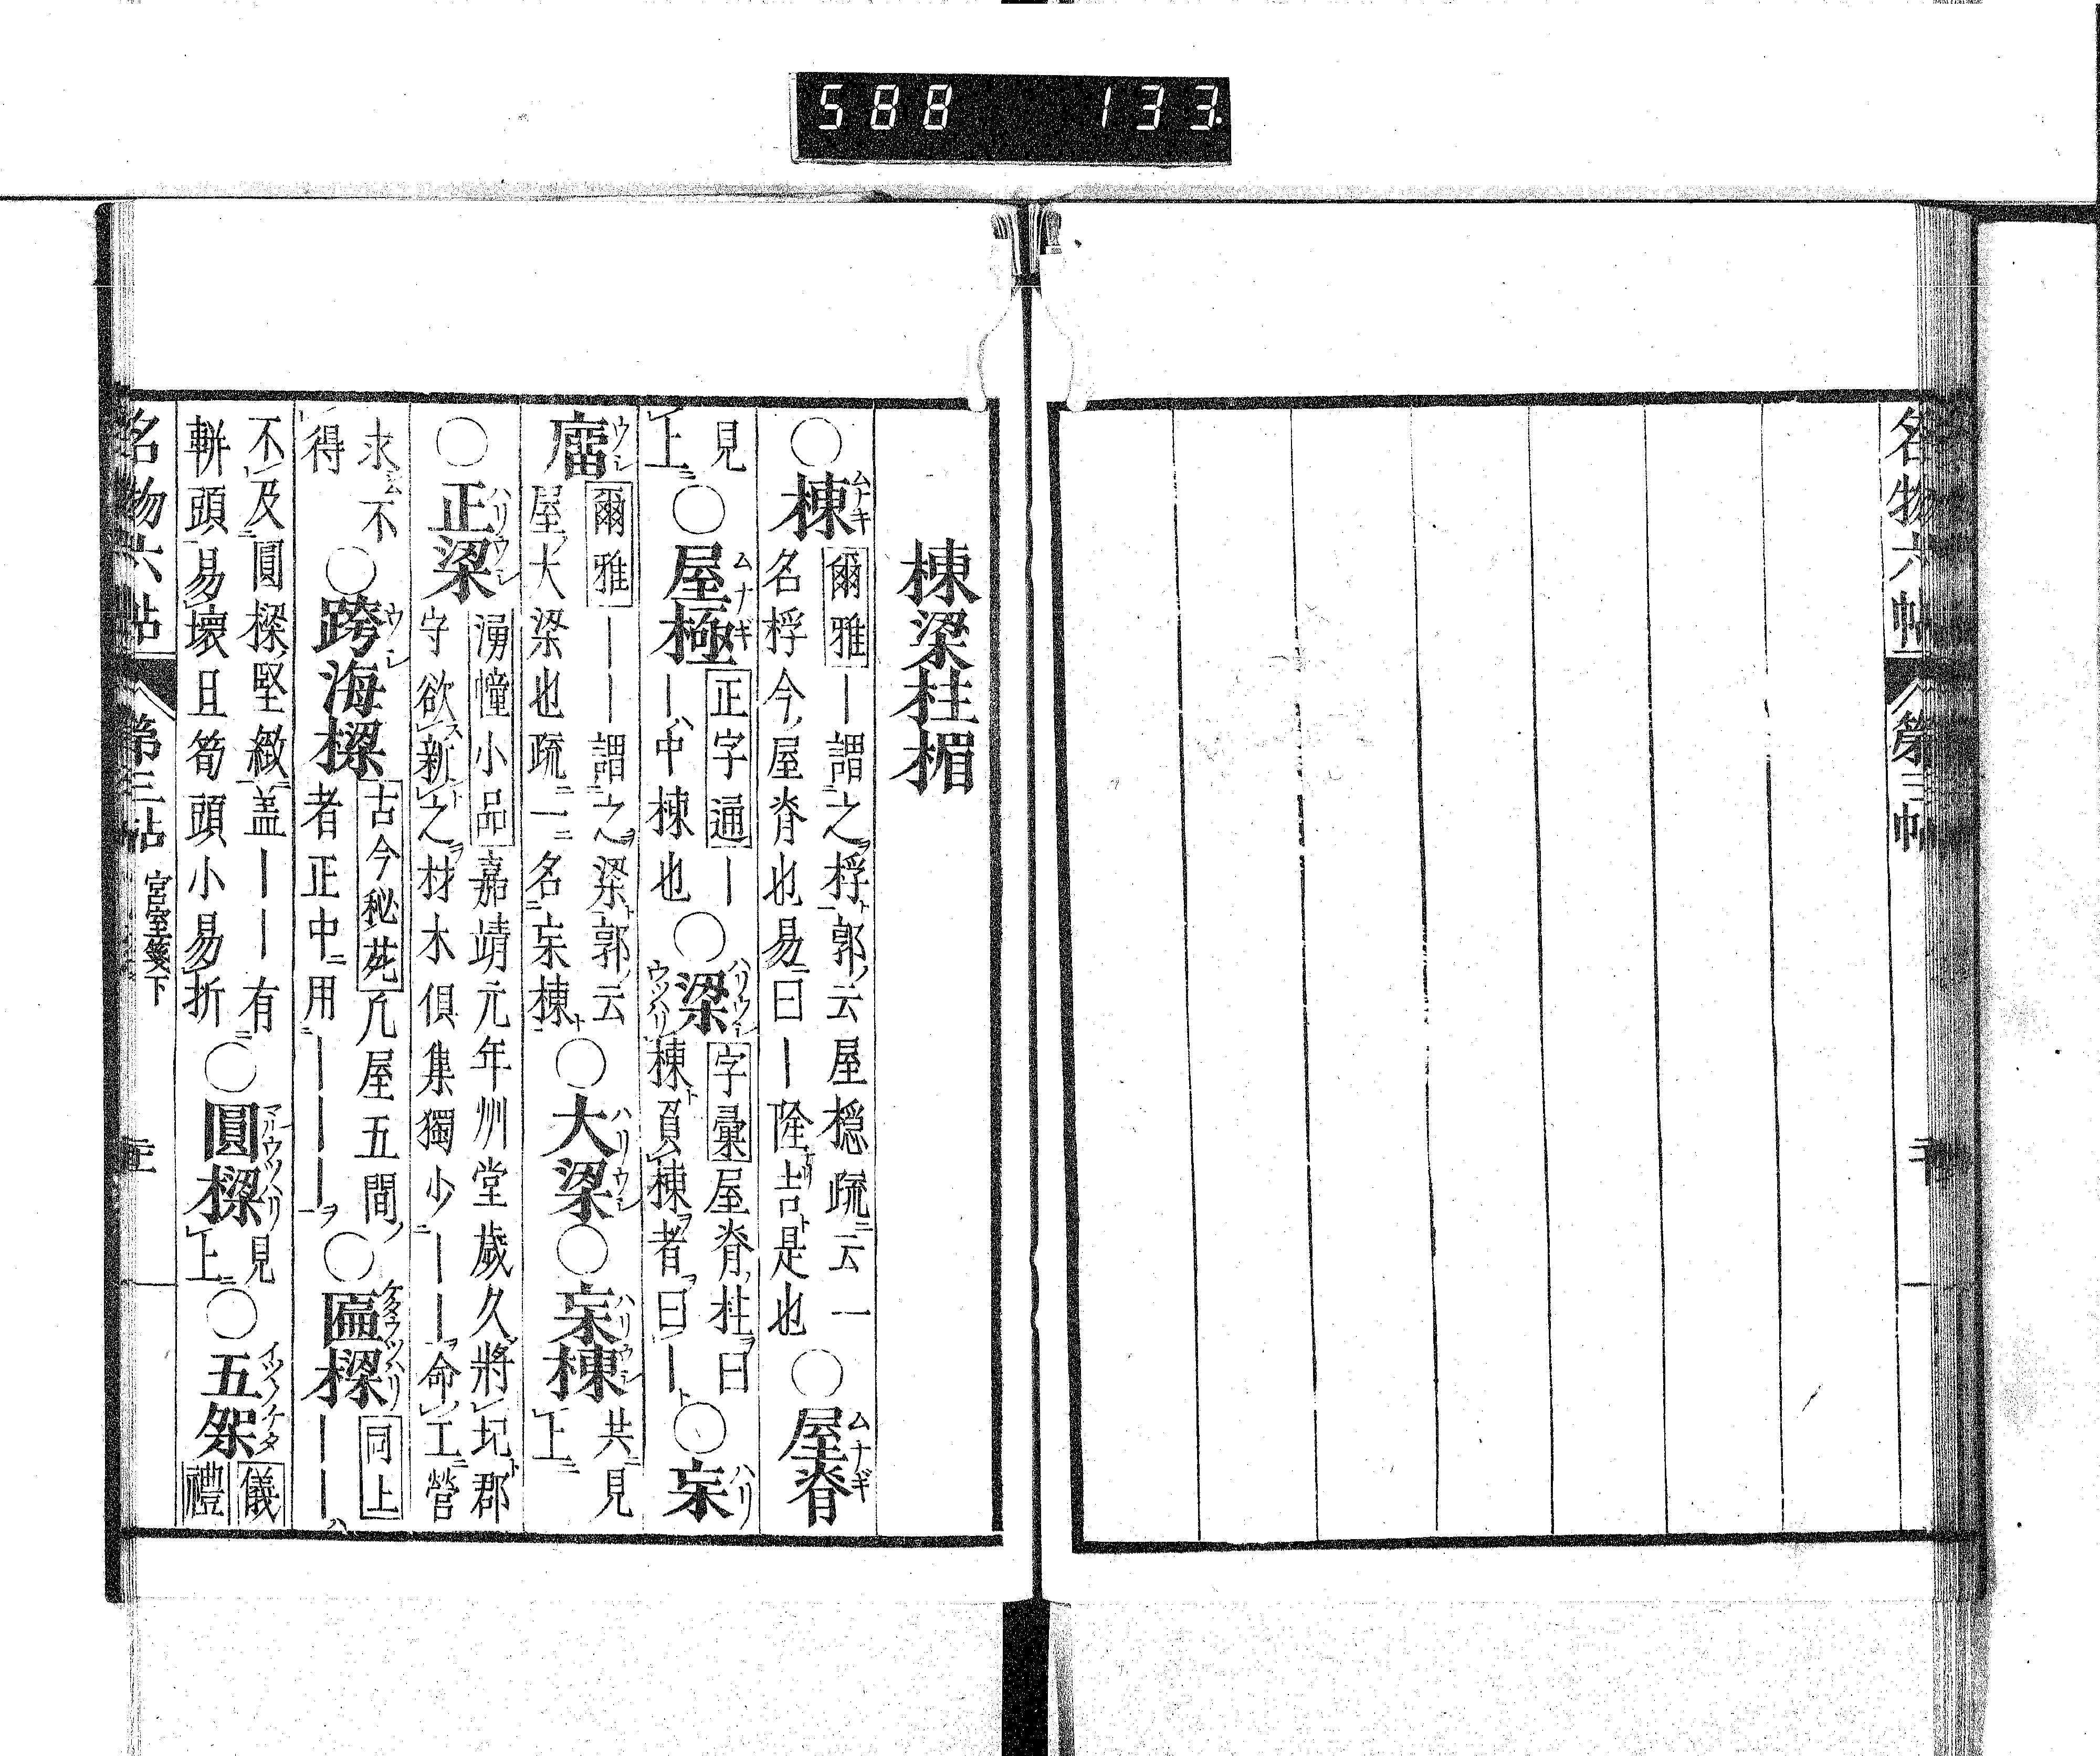 588 133
名物六帖 第三帖
棟梁柱楣
○棟ムナキ 爾雅 ー謂之桴郭云屋穏疏云一
名桴今屋脊也易曰ー隆吉是也 ○屋脊ムナギ
見
上 ○屋極ムナギ 正字通 ー
ー中棟也 ○梁ハリウツハリ 字彙 屋脊柱曰
棟負棟者曰ー ○杗ハリ
廇 爾雅 ーー謂之梁郭云
屋大梁也疏一名杗棟 ○大梁ハリ ○杗棟ハリ 共見
上
○正梁ハリ 湧幢小品 嘉靖元年州堂歲久將圮郡
守欲新之材木俱集獨少ーー命工營
求不
得 ○跨海樑 古今秘苑 凡屋五間
者正中用ーーー ○匾樑 同上
ーー
不及圓樑堅緻蓋ーー有
軿頭易壞且筍頭小易折 ○圓樑マルウツハリ 見
上 ○五架イツヽノケタ 儀
禮
名物六帖 第三帖 宮室箋下